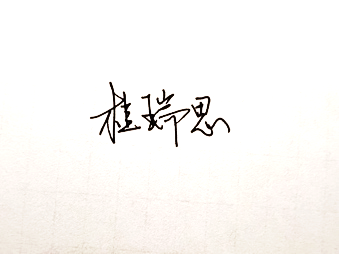 桂瑞思